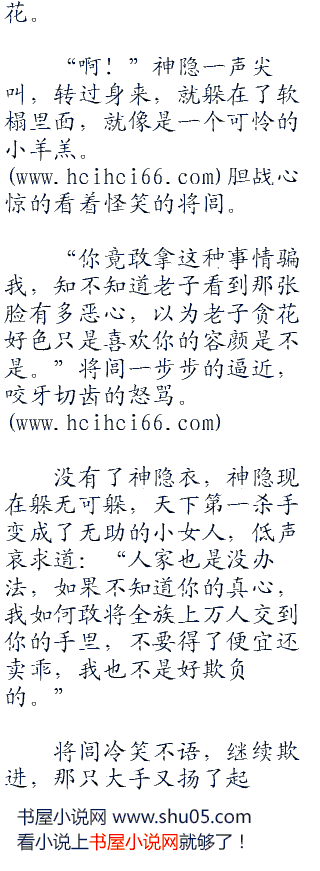 花。
“啊！”神隐一声尖
叫，转过身来，就躲在了软
榻里面，就像是一个可怜的
小羊羔。
(www.hcihci66.com)胆战心
惊的看着怪笑的将闾。
“你竟敢拿这种事情骗
我，知不知道老子看到那张
脸有多恶心，以为老子贪花
好色只是喜欢你的容颜是不
是。”将闾一步步的逼近，
咬牙切齿的怒骂。
(www.hcihci66.com)
没有了神隐衣，神隐现
在躲无可躲，天下第一杀手
变成了无助的小女人，低声
哀求道：“人家也是没办
法，如果不知道你的真心，
我如何敢将全族上万人交到
你的手里，不要得了便宜还
卖乖，我也不是好欺负
的。”
将闾冷笑不语，继续欺
进，那只大手又扬了起
书屋小说网 www.shu05.com
看小说上书屋小说网就够了！